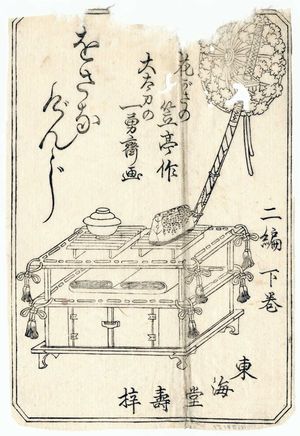 花がさの
笠亭作
大太刀の
一勇齋画
をさな
げんじ
二編下巻
東海堂壽梓